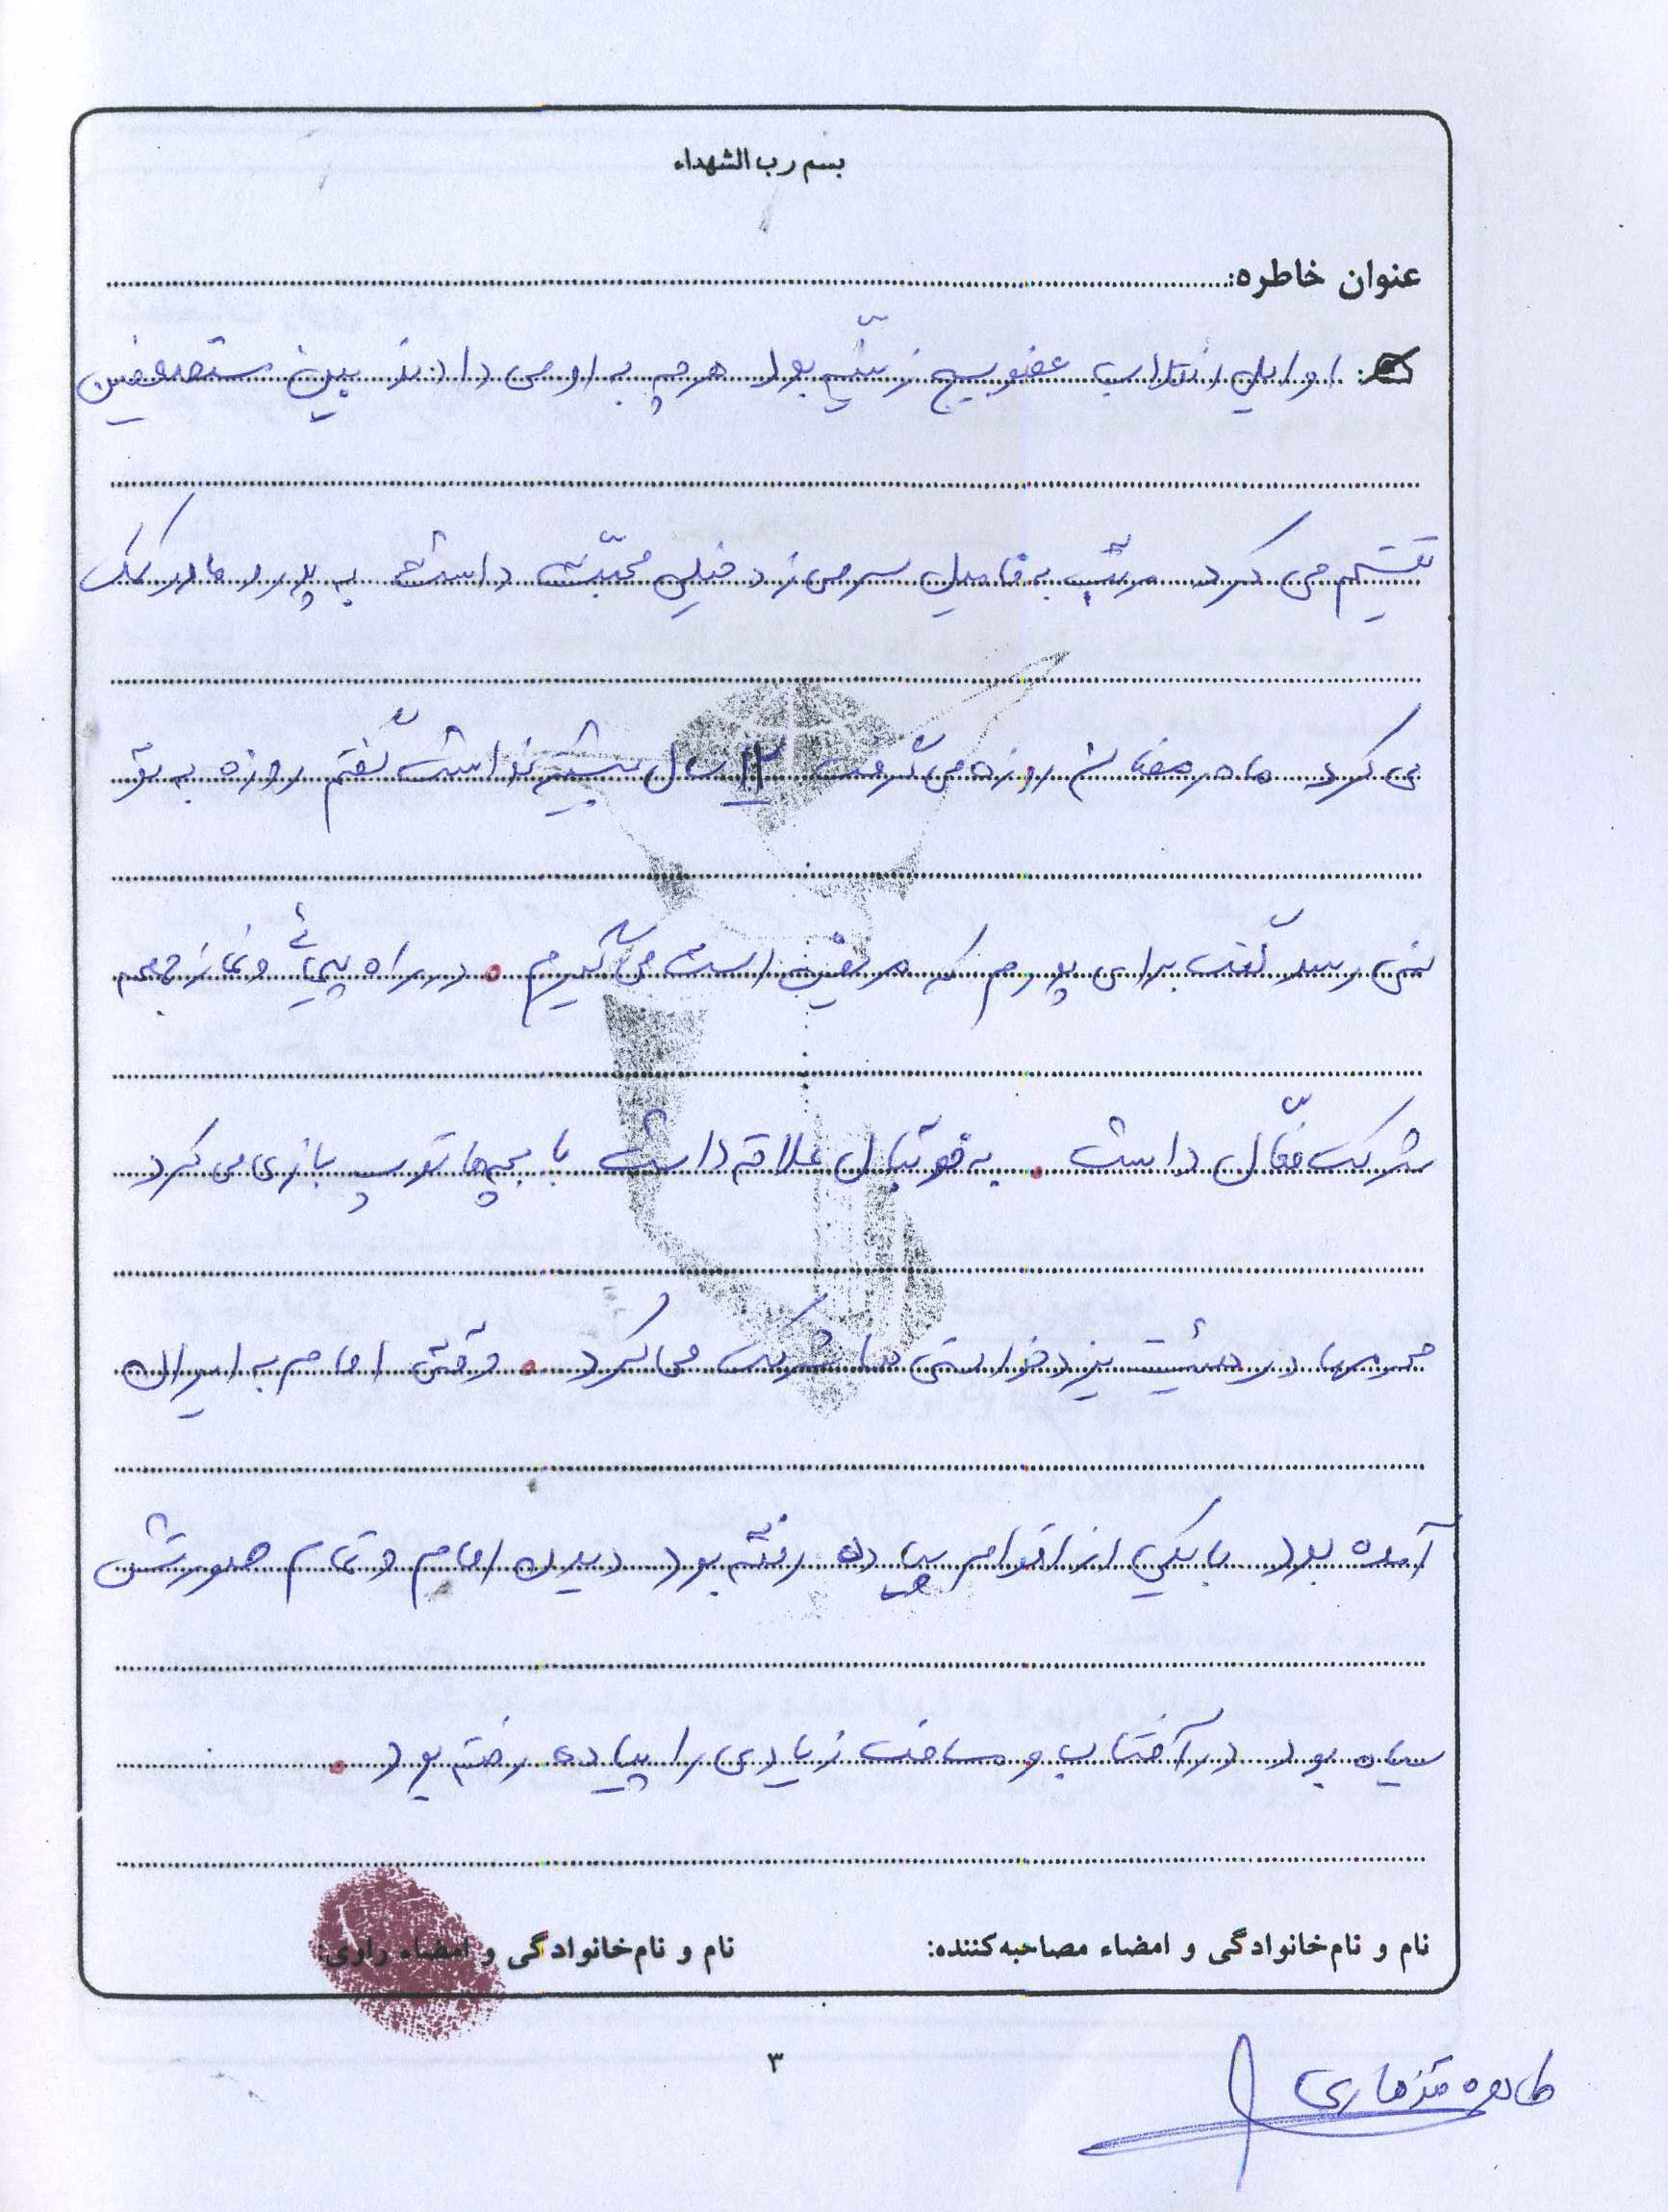 بسم رب الشهداء
عنوان خاطره:
اوایل انقلاب عضو بسیج زینبیه بود هر چه به او می دادند بین مستضعفین
تقسیم می کرد مرتب به فامیل سر می زد خیلی محبّت داشت به پدر و مادر کمک
می کرد ماه رمضان روزه می گرفت ۱۲ سال بیشتر نداشت گفتم روزه به تو
نمی رسد گفت برای پدرم که مریض است می گیرم . در راه پیمائی و نماز جمعه
شرکت فعّال داشت . به فوتبال علاقه داشت با بچه ها توپ بازی می کرد
محرمها در هیئت شرکت می کرد . وقتی امام به ایران
آمده بود با یکی از اقوام پیاده رفته بود دیدن امام و تمام صورتش
سیاه بود در آفتاب و مسافت زیادی را پیاده رفته بود .
نام و نام خانوادگی و امضاء مصاحبه کننده:
نام و نام خانوادگی و امضاء راوی:
۳
طاهره قندهاری